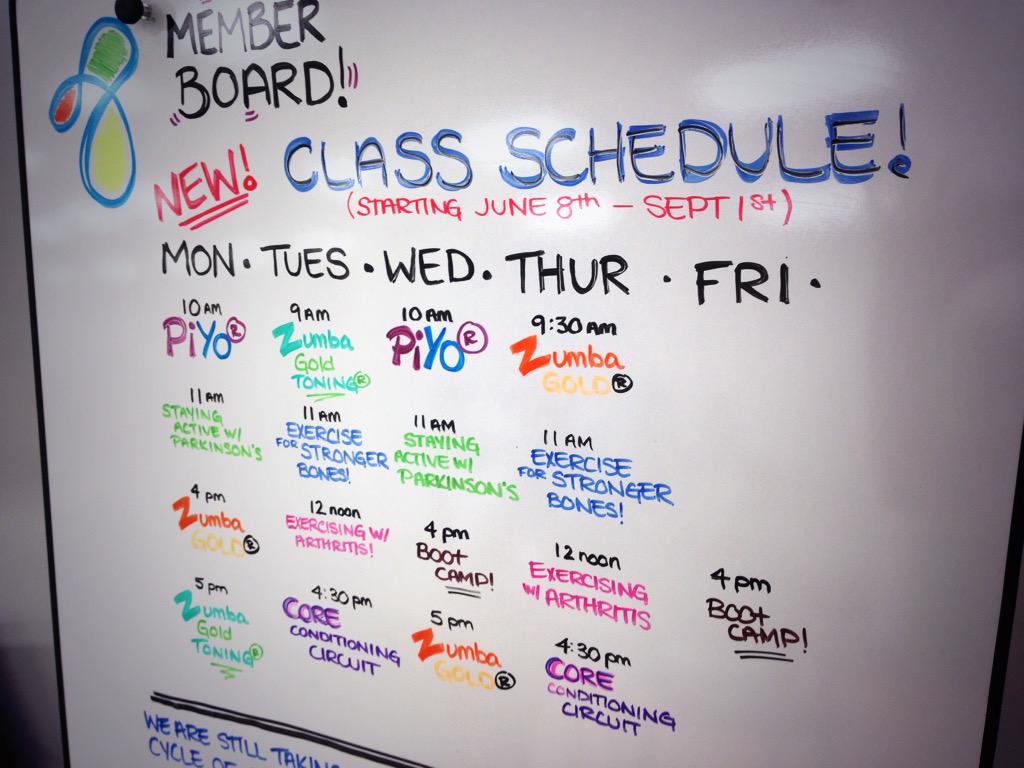 MEMBER
BOARD!
NEW! CLASS SCHEDULE!
(STARTING JUNE 8th - SEPT 1st)
MON · TUES · WED · THUR · FRI ·
10 AM
PiYo®
11 AM
STAYING
ACTIVE W/
PARKINSON'S
4 pm
Zumba
GOLD®
5 pm
Zumba
Gold
TONING®
9 AM
Zumba
Gold
TONING®
11 AM
EXERCISE
FOR STRONGER
BONES!
12 noon
EXERCISING W/
ARTHRITIS!
4:30 pm
CORE
CONDITIONING
CIRCUIT
10 AM
PiYo®
11 AM
STAYING
ACTIVE W/
PARKINSON'S
4 pm
BOOt
CAMP!
5 pm
Zumba
GOLD®
9:30 AM
Zumba
GOLD®
11 AM
EXERCISE
FOR STRONGER
BONES!
12 noon
EXERCISING
W/ ARTHRITIS
4:30 pm
CORE
CONDITIONING
CIRCUIT
4 pm
BOOt
CAMP!
WE ARE STILL TAKING
CYCLE OF